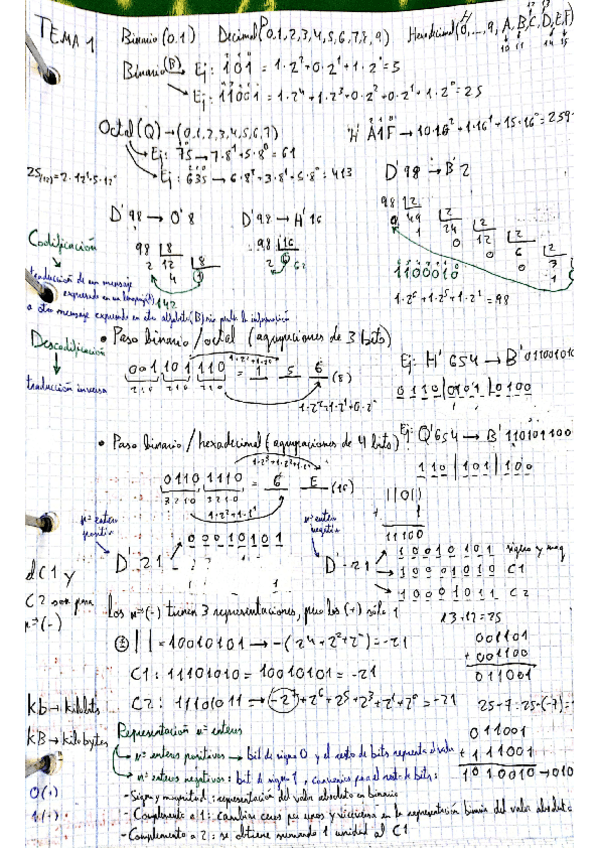 TEMA 1 Binario (0,1) Decimal (0,1,2,3,4,5,6,7,8,9) Hexadecimal (0,...,9, A, B, C, D, E, F)
10 11 12 13 14 15
Binario (B) Ej: 101 = 1·2²+0·2¹+1·2⁰=5
Ej: 11001 = 1·2⁴+1·2³+0·2²+0·2¹+1·2⁰=25
Octal (Q) → (0,1,2,3,4,5,6,7)
H' A1F → 10·16²+1·16¹+15·16⁰=259
Ej: 75 → 7·8¹+5·8⁰=61
Ej: 635 → 6·8²+3·8¹+5·8⁰=413
D'98 → B'2
D'98 → O'8 D'98 → H'16
98 |2
0 49 |2
1 24 |2
0 12 |2
0 6 |2
0 3
1
98 |8
2 12 |8
4 1
98 |16
2 6 62
142
1100010
1·2⁶+1·2⁵+1·2¹=98
Codificación
traducción de un mensaje
expresado en un lenguaje
a otro mensaje expresado en otro alfabeto (B) sin perder la información
Descodificación
traducción inversa
• Paso binario/octal (agrupaciones de 3 bits)
001 101 110 = 1 5 6 (8)
210 210 210
1·2²+1·2¹+0·2⁰
Ej: H'654 → B'011001010
0110|0101|0100
• Paso binario/hexadecimal (agrupaciones de 4 bits)
Ej: Q'654 → B'110101100
110|101|100
0110 1110 = 6 E (16)
3210 3210
1·2²+1·2¹
11011
+ 1
11100
nº entero positivo
D'21 00010101
nº entero negativo
D'-21
10010101 signo y mag
10001010 C1
10001011 C2
C1 y
C2 son para
nº (-)
Los nº (-) tienen 3 representaciones, pero los (+) sólo 1
| | = 10010101 → -(2⁴+2²+2⁰)=-21
C1: 11101010 = 10010101 = -21
C2: 11101011 → -2⁷+2⁶+2⁵+2³+2¹+2⁰=-21
13+12=25
001101
+001100
011001
kb → kilobits
kB → kilobytes
25-7=25+(-7)=
011001
+111001
1010010 → 010
Representación nº enteros
nº enteros positivos → bit de signo 0 y el resto de bits representa el valor
nº enteros negativos: bit de signo 1, convenios para el resto de bits:
0(+)
1(-)
- Signo y magnitud: representación del valor absoluto en binario
- Complemento a 1: cambiar ceros por unos y viceversa en la representación binaria del valor absoluto
- Complemento a 2: se obtiene sumando 1 unidad al C1